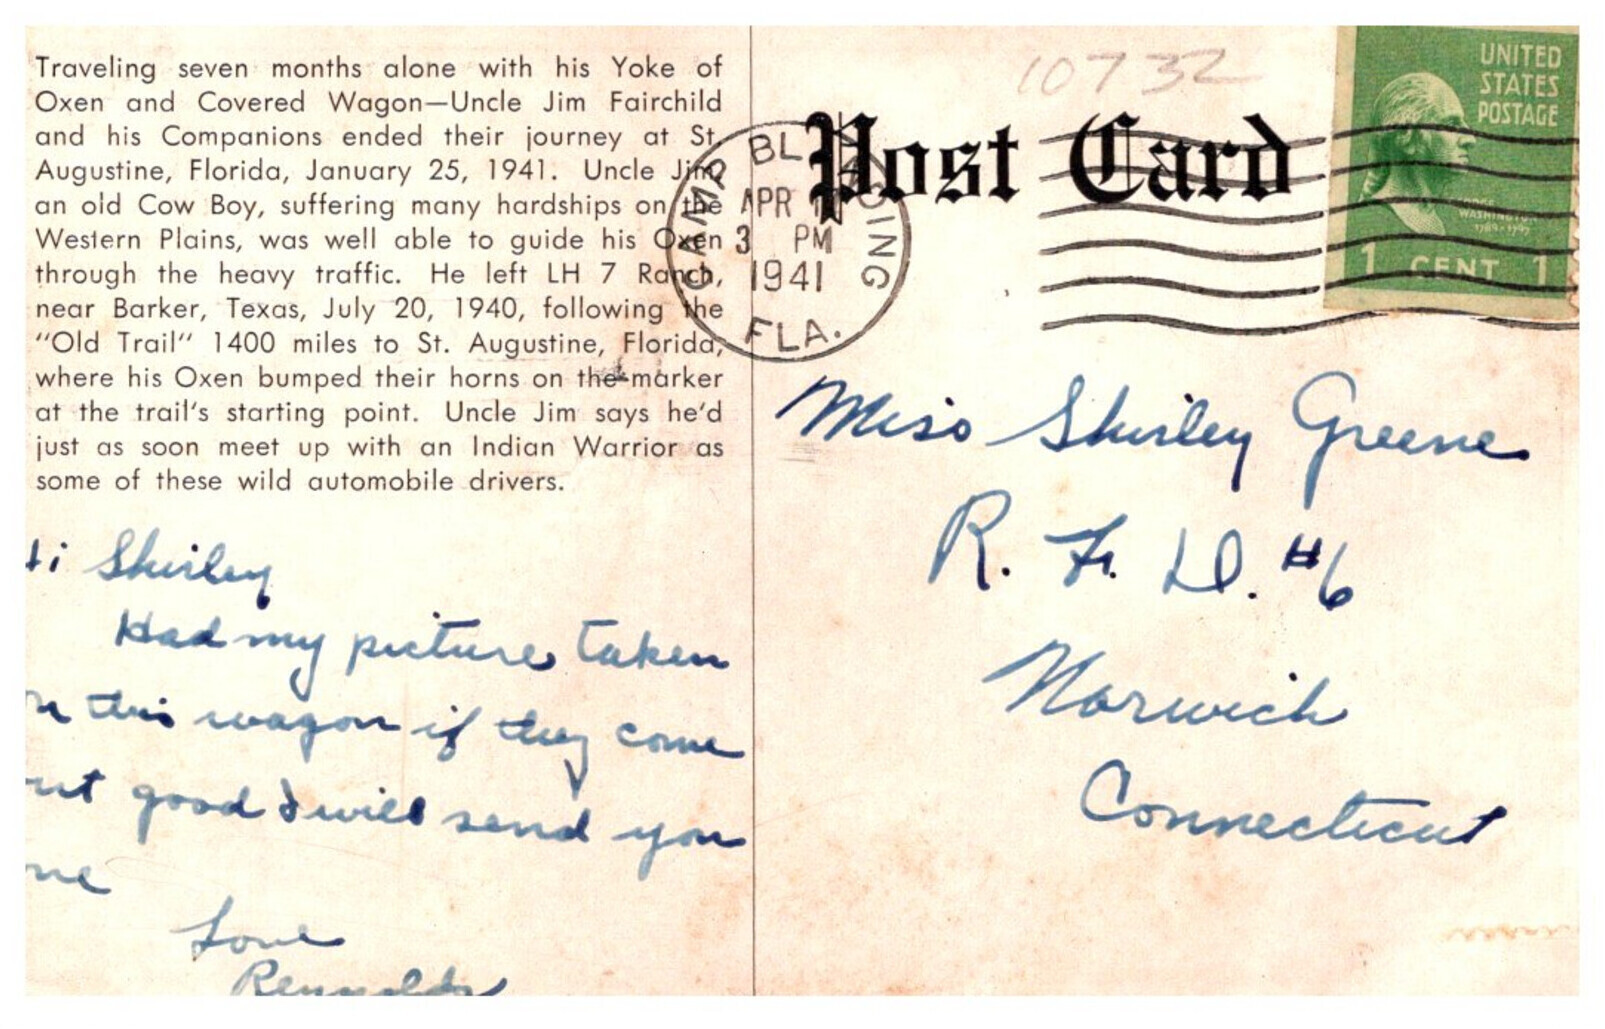 Traveling seven months alone with his Yoke of
Oxen and Covered Wagon—Uncle Jim Fairchild
and his Companions ended their journey at St.
Augustine, Florida, January 25, 1941. Uncle Jim,
an old Cow Boy, suffering many hardships on the
Western Plains, was well able to guide his Oxen
through the heavy traffic. He left LH 7 Ranch,
near Barker, Texas, July 20, 1940, following the
"Old Trail" 1400 miles to St. Augustine, Florida,
where his Oxen bumped their horns on the marker
at the trail's starting point. Uncle Jim says he'd
just as soon meet up with an Indian Warrior as
some of these wild automobile drivers.
Hi Shirley
Had my picture taken
on this wagon if they come
out good I will send you
one
Love
Reynolds
10732
Post Card
CAMP BLANDING
APR
3 PM
1941
FLA.
UNITED
STATES
POSTAGE
GEORGE
WASHINGTON
1789-1797
1 CENT 1
Miss Shirley Greene
R. F. D. #6
Norwich
Connecticut